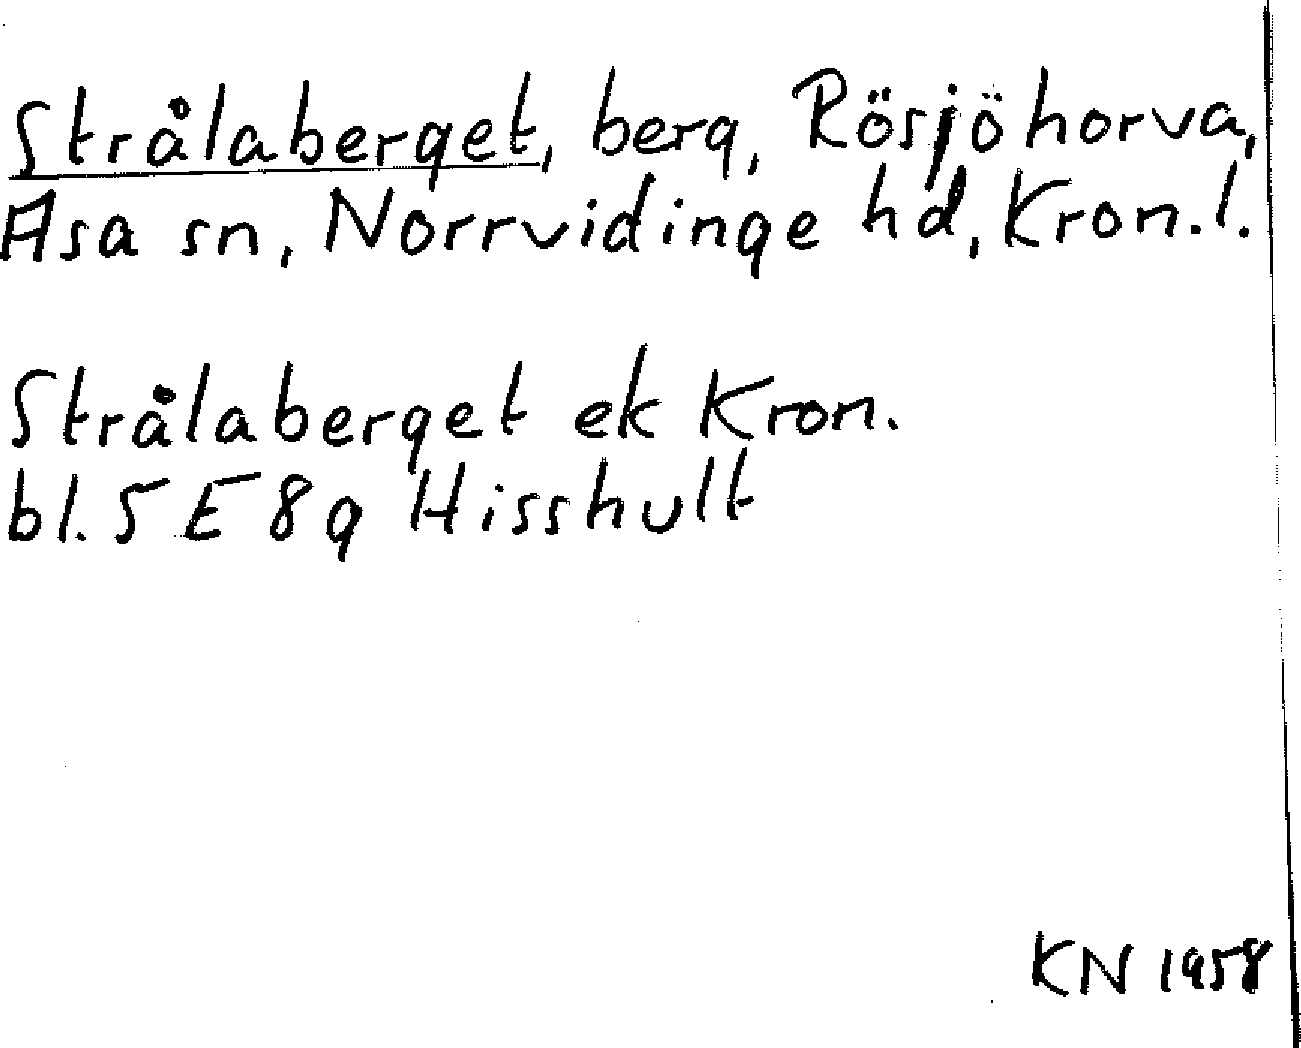 Strålaberget, berg, Rösjöhorva,
Asa sn, Norrvidinge hd, Kron.l.
Strålaberget ek Kron.
bl. 5 E 8g Hisshult
KN 1958